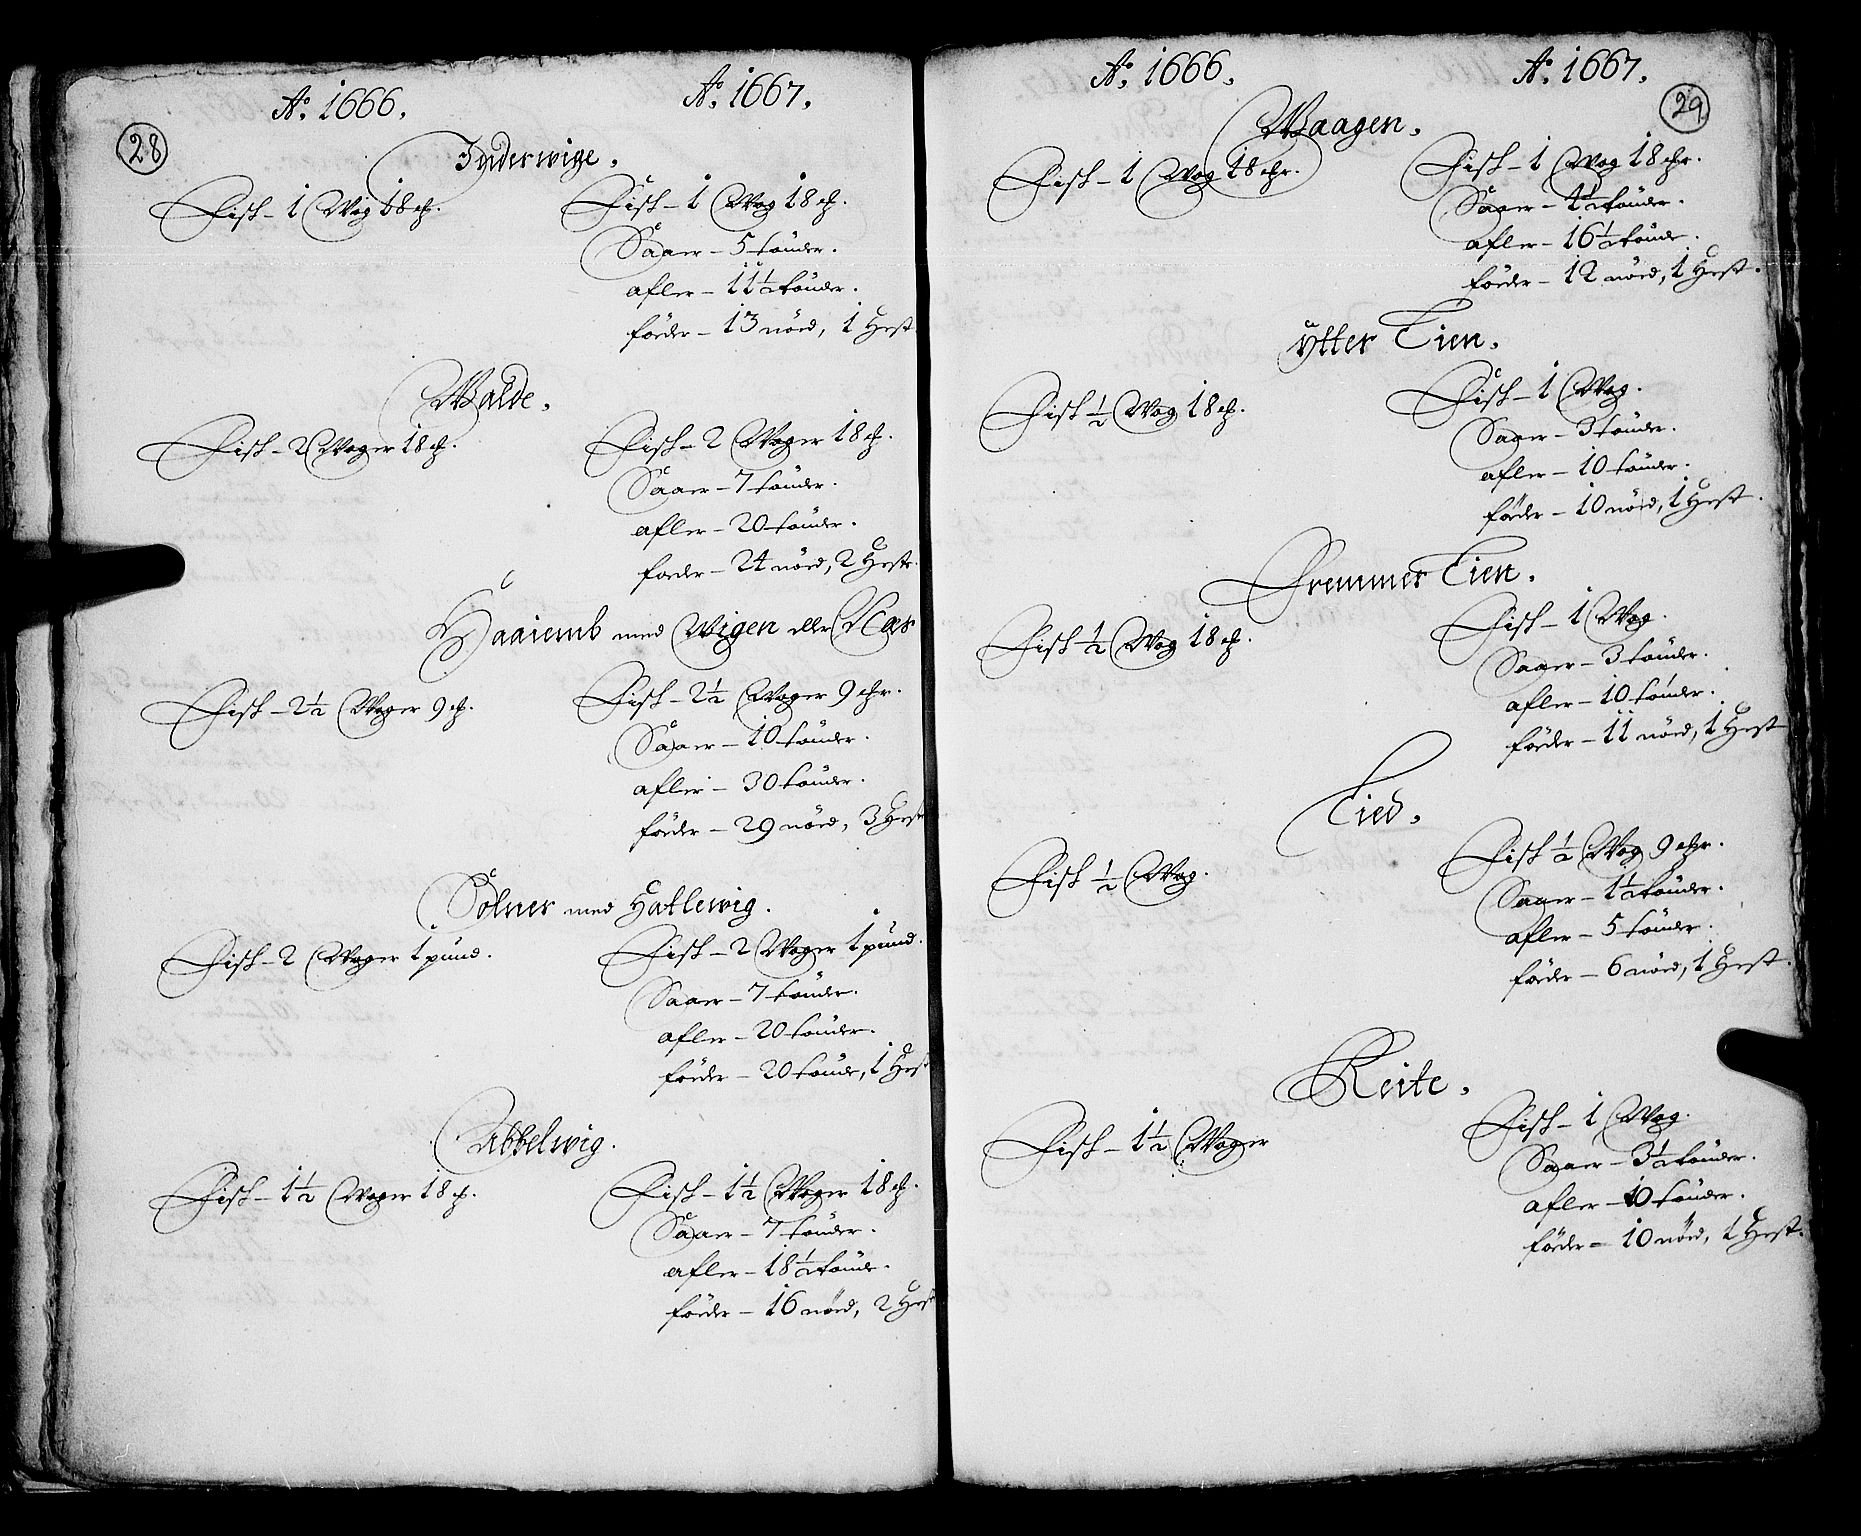 28
Ao. 1666.
Ao. 1667.
Inderwige.
Fisk – 1 Wog 18 ℔.
Fisk – 1 Wog 18 ℔.
Saaer – 5 tönder.
afler – 11½ tönder.
föder – 13 nöed, 1 Hest
Walde.
Fisk – 2 Woger 18 ℔.
Fisk – 2 Woger 18 ℔.
Saaer – 7 tönder.
afler – 20 tönder.
foeder – 24 nöed, 2 Heste.
Haaiemb med Wigen eller Næs
Fisk – 2½ Woger 9 ℔.
Fisk – 2½ Woger 9 ℔r.
Saaer – 10 tönder.
afler – 30 tönder.
föder – 29 nöed, 3 Hest
Solnes med Hatlewig.
Fisk – 2 Woger 1 pund.
Fisk – 2 Woger 1 pund.
Saaer – 7 tönder.
afler – 20 tönder.
föder – 20 tönde, 1 Hest
Ubbelwig.
Fisk – 1½ Woger 18 ℔.
Fisk – 1½ Woger 18 ℔.
Saaer – 7 tönder.
afler – 18½ tönde.
föder – 16 nöed, 2 Hest
29
Ao. 1666.
Ao. 1667.
Waagen.
Fisk – 1 Wog 18 ℔r.
Fisk – 1 Wog 18 ℔r.
Saaer – 4½ tönder.
afler – 16½ tönde.
föder – 12 nöed, 1 Hest.
Ytter Tien.
Fisk ½ Wog 18 ℔.
Fisk – 1 Wog.
Saaer – 3 tönder.
afler – 10 tönder.
föder – 10 nöed, 1 Hest.
Fremmer Tien.
Fisk ½ Wog 18 ℔.
Fisk – 1 Wog.
Saaer – 3 tönder.
afler – 10 tönder.
föder – 11 nöed, 1 Hest
Eied.
Fisk ½ Wog.
Fisk ½ Wog 9 ℔r.
Saaer – 1½ tönder.
afler – 5 tönder.
föder – 6 nöed, 1 Hest.
Reite.
Fisk – 1½ Woger
Fisk – 1 Wog.
Saaer – 3½ tönder.
afler – 10 tönder.
föder – 10 nöed, 1 Hest.